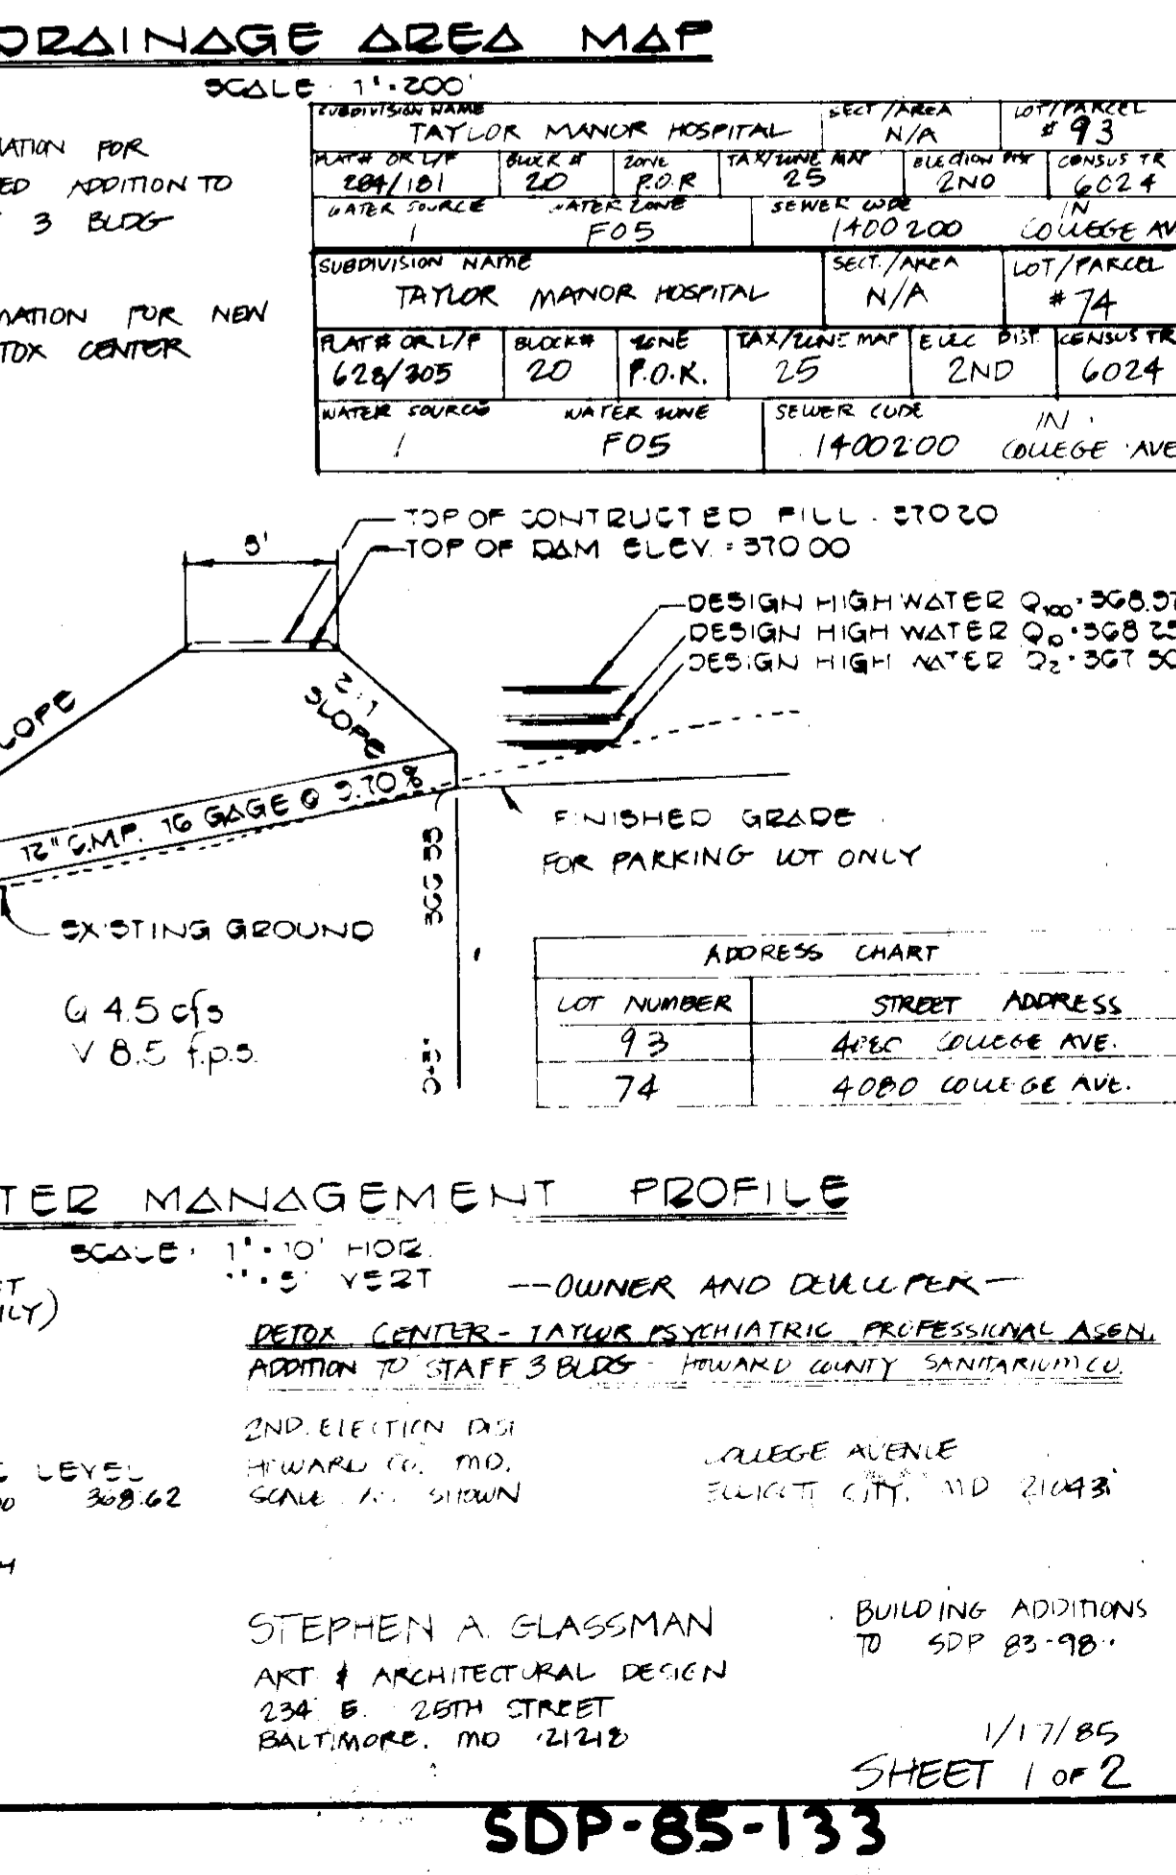 DRAINAGE AREA MAP
SCALE 1"=200'
FOR
ADDITION TO
3 BLDG
SUBDIVISION NAME
TAYLOR MANOR HOSPITAL
SECT/AREA
N/A
LOT/PARCEL
#93
PLAT# OR L/F
284/181
BLOCK #
20
ZONE
P.O.R
TAX/ZONE MAP
25
ELECTION DIST
2ND
CENSUS TR
6024
WATER SOURCE
1
WATER ZONE
F05
SEWER CODE
1400200
IN
COLLEGE AV
FOR NEW
CENTER
SUBDIVISION NAME
TAYLOR MANOR HOSPITAL
SECT./AREA
N/A
LOT/PARCEL
#74
PLAT# OR L/F
628/305
BLOCK#
20
ZONE
P.O.R.
TAX/ZONE MAP
25
ELEC DIST.
2ND
CENSUS TR
6024
WATER SOURCE
1
WATER ZONE
F05
SEWER CODE
1400200
IN
COLLEGE AVE
TOP OF CONTRUCTED FILL = 370.20
5'
TOP OF DAM ELEV. = 370.00
DESIGN HIGH WATER Q100
DESIGN HIGH WATER
DESIGN HIGH WATER Q2 = 367.50
2:1
SLOPE
12" C.M.P. 16 GAGE @
FINISHED GRADE
FOR PARKING LOT ONLY
EXISTING GROUND
Q 4.5 cfs
V 8.5 f.p.s.
ADDRESS CHART
LOT NUMBER STREET ADDRESS
93 COLLEGE AVE.
74 4080 COLLEGE AVE.
MANAGEMENT PROFILE
SCALE: 1"=10' HOR.
1"=5' VERT
—OWNER AND DEVELOPER—
DETOX CENTER - TAYLOR PSYCHIATRIC PROFESSIONAL
ADDITION TO STAFF 3 BLDG - HOWARD COUNTY SANITARIUM CO.
2ND. ELECTION DIST
HOWARD CO. MD.
SCALE AS SHOWN
COLLEGE AVENUE
ELLICOTT CITY, MD 21043
LEVEL
368.62
STEPHEN A. GLASSMAN
ART & ARCHITECTURAL DESIGN
234 E. 25TH STREET
BALTIMORE. MD 21218
BUILDING ADDITIONS
TO SDP 83-98
1/17/85
SHEET 1 OF 2
SDP-85-133